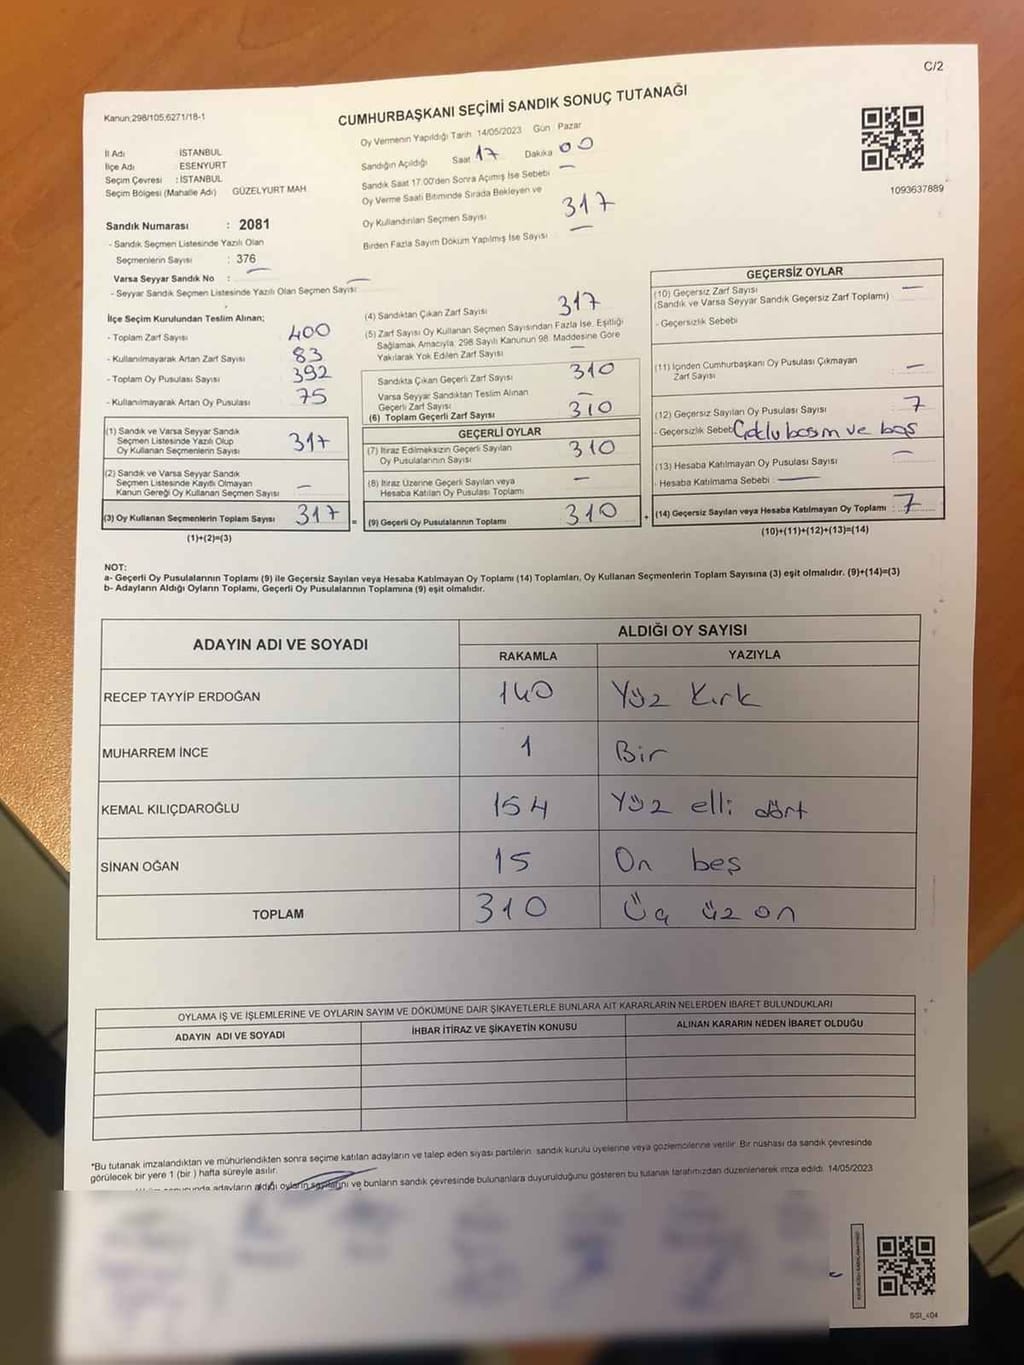 C/2
Kanun;298/105,6271/18-1
CUMHURBAŞKANI SEÇİMİ SANDIK SONUÇ TUTANAĞI
Oy Vermenin Yapıldığı Tarih 14/05/2023 Gün Pazar
Sandığın Açıldığı Saat 17 Dakika 00
Sandık Saat 17:00'den Sonra Açımış İse Sebebi —
Oy Verme Saati Bitiminde Sırada Bekleyen ve
Oy Kullandırılan Seçmen Sayısı 317
Birden Fazla Sayım Döküm Yapılmış İse Sayısı —
1093637889
İl Adı : İSTANBUL
İlçe Adı : ESENYURT
Seçim Çevresi : İSTANBUL
Seçim Bölgesi (Mahalle Adı) GÜZELYURT MAH
Sandık Numarası : 2081
- Sandık Seçmen Listesinde Yazılı Olan
Seçmenlerin Sayısı : 376
Varsa Seyyar Sandık No : —
- Seyyar Sandık Seçmen Listesinde Yazılı Olan Seçmen Sayısı —
İlçe Seçim Kurulundan Teslim Alınan;
- Toplam Zarf Sayısı 400
- Kullanılmayarak Artan Zarf Sayısı 83
- Toplam Oy Pusulası Sayısı 392
- Kullanılmayarak Artan Oy Pusulası 75
(1) Sandık ve Varsa Seyyar Sandık
Seçmen Listesinde Yazılı Olup
Oy Kullanan Seçmenlerin Sayısı 317
(2) Sandık ve Varsa Seyyar Sandık
Seçmen Listesinde Kayıtlı Olmayan
Kanun Gereği Oy Kullanan Seçmen Sayısı —
(3) Oy Kullanan Seçmenlerin Toplam Sayısı 317
(1)+(2)=(3)
=
(4) Sandıktan Çıkan Zarf Sayısı 317
(5) Zarf Sayısı Oy Kullanan Seçmen Sayısından Fazla İse, Eşitliği
Sağlamak Amacıyla, 298 Sayılı Kanunun 98. Maddesine Göre
Yakılarak Yok Edilen Zarf Sayısı —
Sandıkta Çıkan Geçerli Zarf Sayısı 310
Varsa Seyyar Sandıktan Teslim Alınan
Geçerli Zarf Sayısı —
(6) Toplam Geçerli Zarf Sayısı 310
GEÇERLİ OYLAR
(7) İtiraz Edilmeksizin Geçerli Sayılan
Oy Pusulalarının Sayısı 310
(8) İtiraz Üzerine Geçerli Sayılan veya
Hesaba Katılan Oy Pusulası Toplamı —
(9) Geçerli Oy Pusulalarının Toplamı 310
+
GEÇERSİZ OYLAR
(10) Geçersiz Zarf Sayısı —
(Sandık ve Varsa Seyyar Sandık Geçersiz Zarf Toplamı)
- Geçersizlik Sebebi
(11) İçinden Cumhurbaşkanı Oy Pusulası Çıkmayan
Zarf Sayısı —
(12) Geçersiz Sayılan Oy Pusulası Sayısı 7
- Geçersizlik Sebebi basım ve boş
(13) Hesaba Katılmayan Oy Pusulası Sayısı —
- Hesaba Katılmama Sebebi —
(14) Geçersiz Sayılan veya Hesaba Katılmayan Oy Toplamı : 7
(10)+(11)+(12)+(13)=(14)
NOT:
a- Geçerli Oy Pusulalarının Toplamı (9) ile Geçersiz Sayılan veya Hesaba Katılmayan Oy Toplamı (14) Toplamları, Oy Kullanan Seçmenlerin Toplam Sayısına (3) eşit olmalıdır. (9)+(14)=(3)
b- Adayların Aldığı Oyların Toplamı, Geçerli Oy Pusulalarının Toplamına (9) eşit olmalıdır.
ADAYIN ADI VE SOYADI
ALDIĞI OY SAYISI
RAKAMLA YAZIYLA
RECEP TAYYİP ERDOĞAN 140 Yüz Kırk
MUHARREM İNCE 1 Bir
KEMAL KILIÇDAROĞLU 154 Yüz elli dört
SİNAN OĞAN 15 On beş
TOPLAM 310 Üç üz on
OYLAMA İŞ VE İŞLEMLERİNE VE OYLARIN SAYIM VE DÖKÜMÜNE DAİR ŞİKAYETLERLE BUNLARA AİT KARARLARIN NELERDEN İBARET BULUNDUKLARI
ADAYIN ADI VE SOYADI İHBAR İTİRAZ VE ŞİKAYETİN KONUSU ALINAN KARARIN NEDEN İBARET OLDUĞU
*Bu tutanak imzalandıktan ve mühürlendikten sonra seçime katılan adayların ve talep eden siyasi partilerin sandık kurulu üyelerine veya gözlemcilerine verilir. Bir nüshası da sandık çevresinde
görülecek bir yere 1 (bir ) hafta süreyle asılır.
adayların aldığı oyların sayılarını ve bunların sandık çevresinde bulunanlara duyurulduğunu gösteren bu tutanak tarafımızdan düzenlenerek imza edildi. 14/05/2023
SSI_404